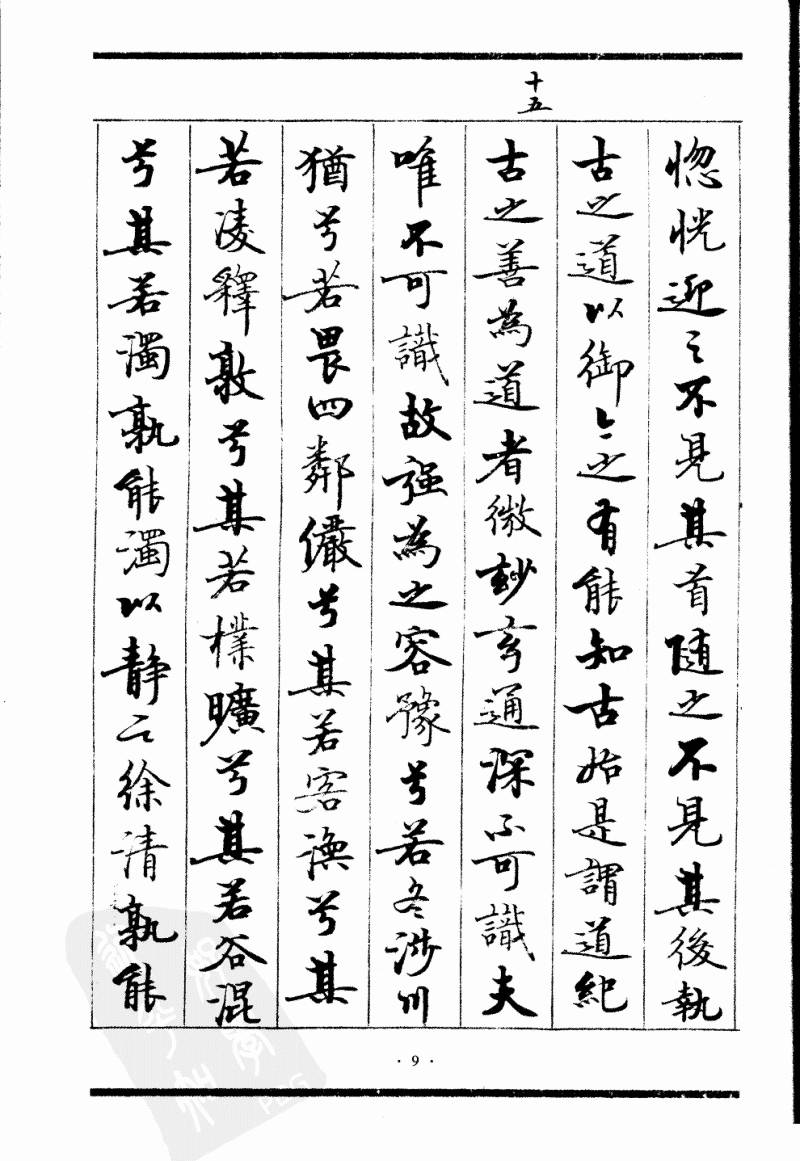 十五
惚恍迎之不見其首随之不見其後執
古之道以御今之有能知古始是謂道紀
古之善為道者微妙玄通深不可識夫
唯不可識故强為之容豫兮若冬涉川
猶兮若畏四鄰儼兮其若客渙兮其
若凌釋敦兮其若樸曠兮其若谷混
兮其若濁孰能濁以静之徐清孰能
·9·